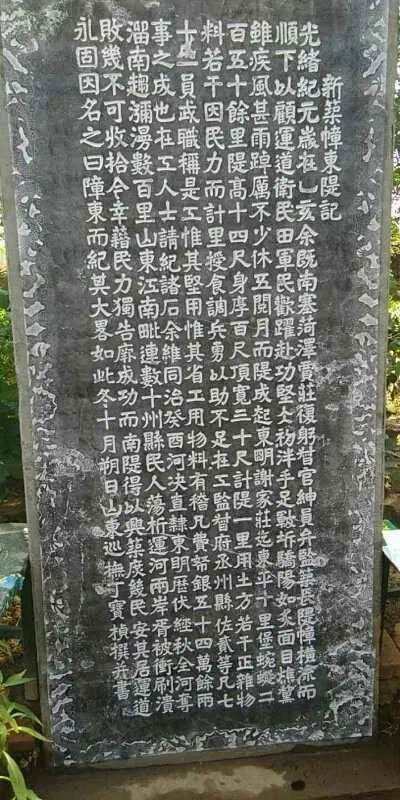 新築障東隄記
光緒紀元歲在乙亥余既南塞菏澤賈莊復躬督官紳員弁監築長隄障横流而
順下以顧運道衛民田軍民歡躍赴功堅冰初泮手足皸坼驕陽如炙面目焦黧
雖疾風甚雨踔厲不少休五閱月而隄成起東明謝家莊迄東平十里堡蜿蜒二
百五十餘里隄高十四尺身厚百尺頂寬三十尺計隄一里用土方若干正雜物
料若干因民力而計里授食調兵勇以助不足在工監督府丞州縣佐貳等凡七
十一員武職稱是工惟其堅用惟其省工用物料有稽凡費帑銀五十四萬餘兩
事之成也在工人士請紀諸石余維同治癸酉河決直隸東明歷伏經秋全河奪
溜南趨瀰漫數百里山東江南毗連數十州縣民人蕩析運河兩岸胥被衝刷潰
敗幾不可收拾今幸藉民力獨告厥成功而南隄得以興築庶幾民安其居運道
永固因名之曰障東而紀其大畧如此冬十月朔日山東巡撫丁寶楨撰并書